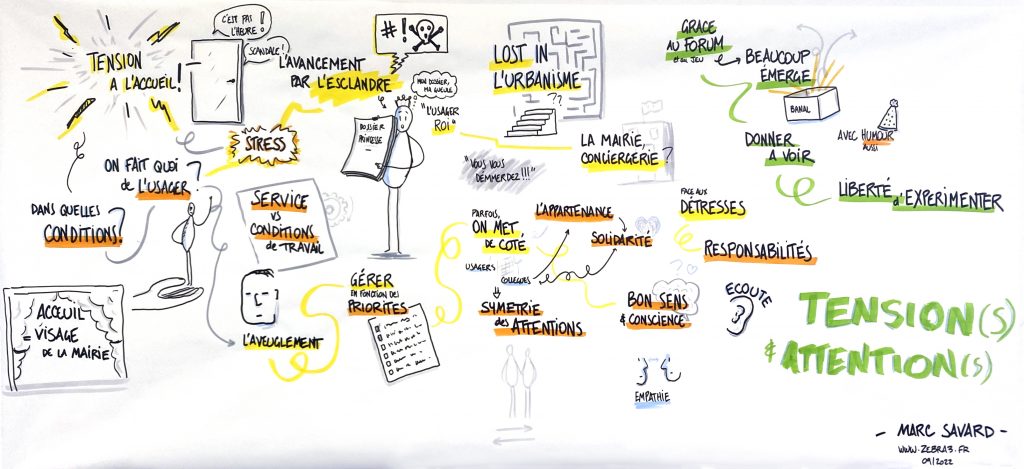 TENSION
A L'ACCUEIL!
C'EST PAS
L'HEURE!
SCANDALE!
L'AVANCEMENT
PAR L'ESCLANDRE
#!
STRESS
ON FAIT QUOI
de L'USAGER?
DANS QUELLES
CONDITIONS?
ACCUEIL
= VISAGE
DE LA MAIRIE
SERVICE
VS
CONDITIONS
de TRAVAIL
L'AVEUGLEMENT
GÉRER
EN FONCTION DES
PRIORITES
DOSSIER
PRINCESSE
MON DOSSIER,
MA GUEULE
"L'USAGER
ROI"
LOST IN
L'URBANISME
??
"VOUS VOUS
DÉMMERDEZ!!!"
LA MAIRIE,
CONCIERGERIE?
PARFOIS,
ON MET
DE COTÉ
USAGERS
COLLEGUES
L'APPARTENANCE
SOLIDARITÉ
SYMETRIE
des ATTENTIONS
FACE AUX
DÉTRESSES
RESPONSABILITÉS
?
BON SENS
& CONSCIENCE
EMPATHIE
ECOUTE
GRACE
AU FORUM
et au JEU
BEAUCOUP
ÉMERGE
BANAL
AVEC HUMOUR
AUSSI
DONNER
A VOIR
LIBERTÉ d'EXPERIMENTER
TENSION(S)
& ATTENTION(S)
- MARC SAVARD -
WWW.ZEBRA3.FR
09/2022